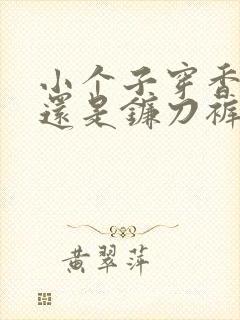 小个子穿香
還是鐮刀裤
黄翠萍